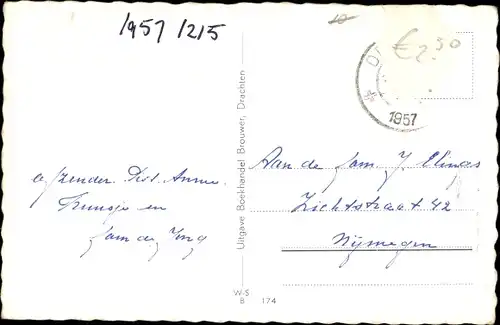 1957 1215
10
€ 2.50
1957
afzender. Anne.
Truusje en
fam de Jong
Uitgave Boekhandel Brouwer, Drachten
Aan de fam. J.
Lichtstraat 42
Nijmegen
W-S
B 174